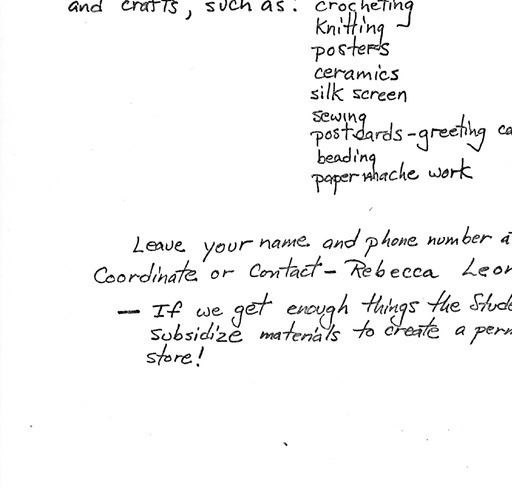 and crafts, such as: crocheting
Knitting
posters
ceramics
silk screen
sewing
postcards-greeting ca
beading
paper mache work
Leave your name and phone number a
Coordinate or Contact - Rebecca Leon
— If we get enough things the Stude
subsidize materials to create a perm
store!